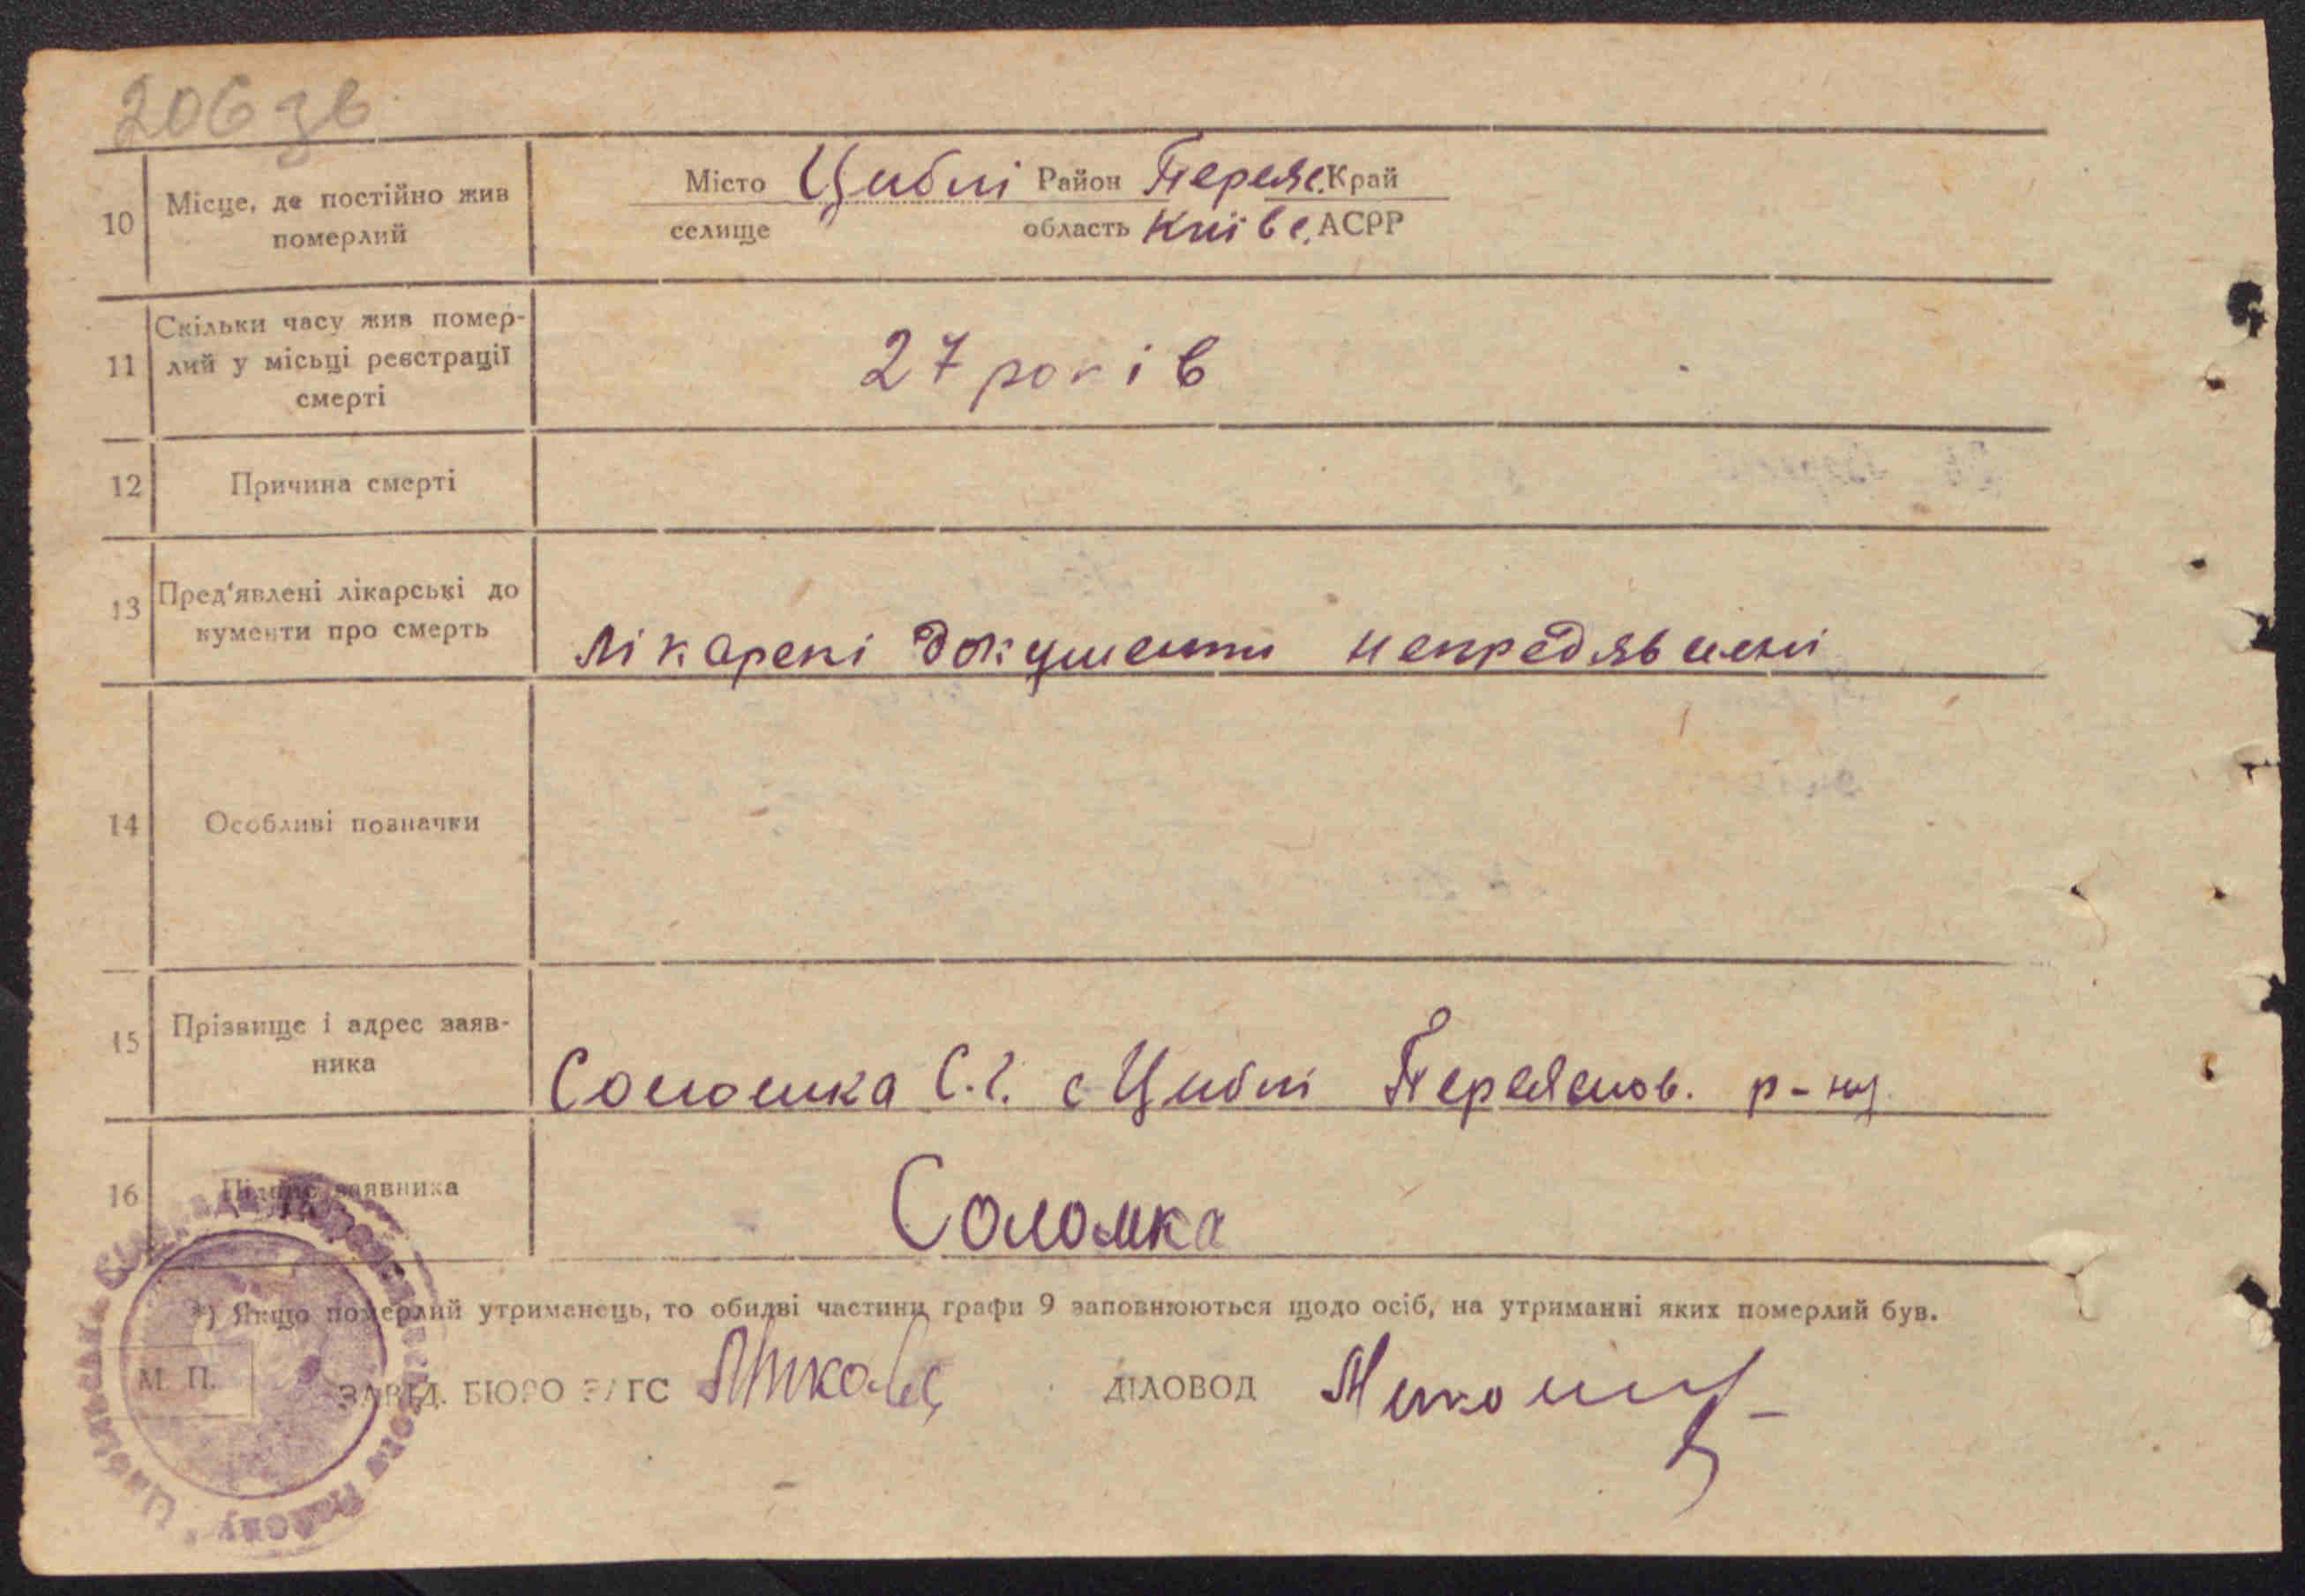 206 зв.
10 Місце, де постійно жив померлий
Місто Циблі Район Переяс. Край
селище область Київс. АСРР
11 Скільки часу жив помер-
лий у місьці реєстрації
смерті
27 років
12 Причина смерті
13 Пред'явлені лікарські до
кументи про смерть
Лікарскі документи непредявлені
14 Особливі позначки
15 Прізвище і адрес заяв-
ника
Соломка С. с Циблі Переяслов. р-ну.
16 Підпис заявника
Соломка
*) Якщо померлий утриманець, то обидві частини графи 9 заповнюються щодо осіб, на утриманні яких померлий був.
М. П. ЗАВІД. БЮРО ЗАГС ДІЛОВОД